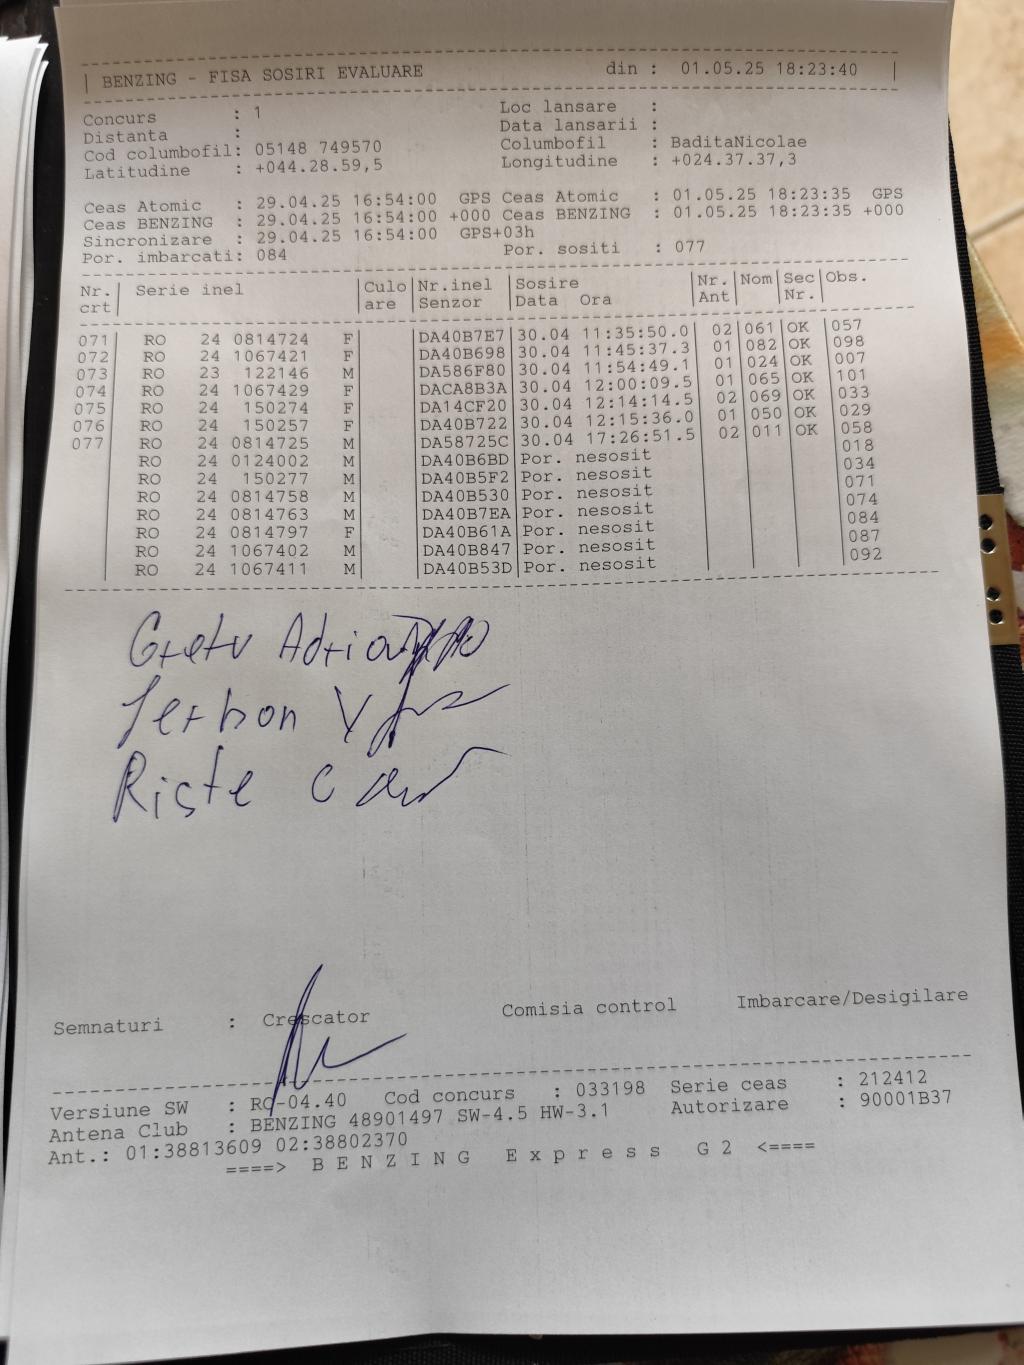 | BENZING - FISA SOSIRI EVALUARE din : 01.05.25 18:23:40 |
Concurs : 1 Loc lansare :
Distanta : Data lansarii :
Cod columbofil: 05148 749570 Columbofil : BaditaNicolae
Latitudine : +044.28.59,5 Longitudine : +024.37.37,3
Ceas Atomic : 29.04.25 16:54:00 GPS Ceas Atomic : 01.05.25 18:23:35 GPS
Ceas BENZING : 29.04.25 16:54:00 +000 Ceas BENZING : 01.05.25 18:23:35 +000
Sincronizare : 29.04.25 16:54:00 GPS+03h
Por. imbarcati: 084 Por. sositi : 077
Nr. | Serie inel |Culo |Nr.inel |Sosire |Nr. |Nom |Sec |Obs.
crt | |are |Senzor |Data Ora |Ant | |Nr. |
071 | RO 24 0814724 F | |DA40B7E7 |30.04 11:35:50.0 | 02 |061 |OK |057
072 | RO 24 1067421 F | |DA40B698 |30.04 11:45:37.3 | 01 |082 |OK |098
073 | RO 23 122146 M | |DA586F80 |30.04 11:54:49.1 | 01 |024 |OK |007
074 | RO 24 1067429 F | |DACA8B3A |30.04 12:00:09.5 | 01 |065 |OK |101
075 | RO 24 150274 F | |DA14CF20 |30.04 12:14:14.5 | 02 |069 |OK |033
076 | RO 24 150257 F | |DA40B722 |30.04 12:15:36.0 | 01 |050 |OK |029
077 | RO 24 0814725 M | |DA58725C |30.04 17:26:51.5 | 02 |011 |OK |058
| RO 24 0124002 M | |DA40B6BD |Por. nesosit | | | |018
| RO 24 150277 M | |DA40B5F2 |Por. nesosit | | | |034
| RO 24 0814758 M | |DA40B530 |Por. nesosit | | | |071
| RO 24 0814763 M | |DA40B7EA |Por. nesosit | | | |074
| RO 24 0814797 F | |DA40B61A |Por. nesosit | | | |084
| RO 24 1067402 M | |DA40B847 |Por. nesosit | | | |087
| RO 24 1067411 M | |DA40B53D |Por. nesosit | | | |092
Cretu Adrian
Serban V
Riste C
Semnaturi : Crescator Comisia control Imbarcare/Desigilare
Versiune SW : RO-04.40 Cod concurs : 033198 Serie ceas : 212412
Antena Club : BENZING 48901497 SW-4.5 HW-3.1 Autorizare : 90001B37
Ant.: 01:38813609 02:38802370
====> B E N Z I N G E x p r e s s G 2 <====